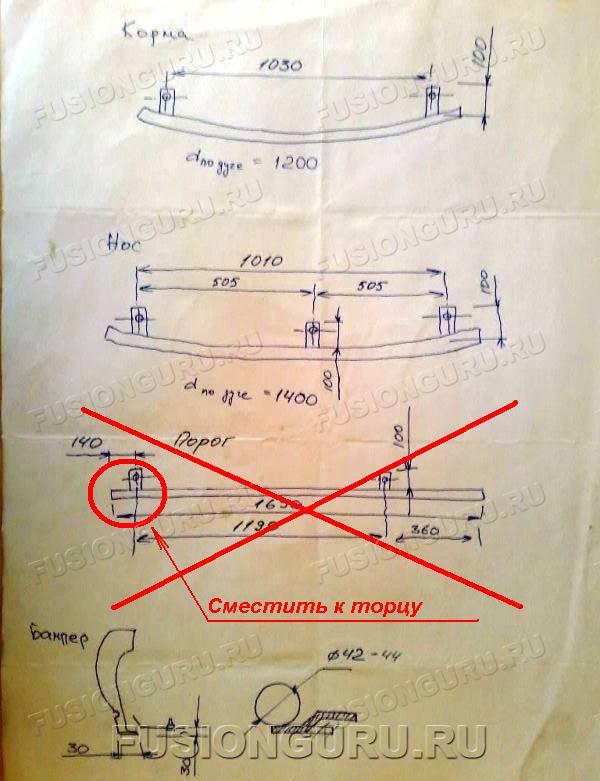 Корма
1030
100
d по дуге = 1200
Нос
1010
505 505
100
100
d по дуге = 1400
Порог
140
100
1650
1190
360
Сместить к торцу
Бампер
Ø42-44
30
30
FUSIONGURU.RU